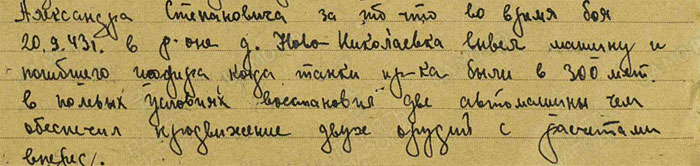 Александра Степановича за то что во время боя
20.9.43г. в р-оне д. Ново Николаевка вывел машину и
погибшего шофира когда танки пр-ка были в 300 мет.
в полевых условиях восстановил две автомашины чем
обеспечил продвижение двух орудий с расчетами
вперед.